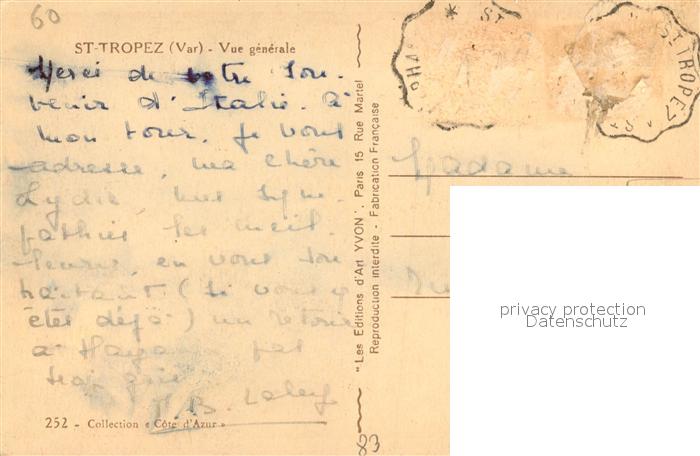 60
ST-TROPEZ (Var) - Vue générale
Merci de votre Sou-
venir d'Italie. A
mon tour, je vous
adresse, ma chère
Lydie, mes sym-
pathies les meil-
leures, en vous sou
haitant (si vous y
êtes déjà) un retour
à pas
trop
252 - Collection « Côte d'Azur »
"Les Editions d'Art YVON". Paris 15 Rue Martel
Reproduction interdite - Fabrication Française
ST
ST TROPEZ
Madame
83
privacy protection
Datenschutz